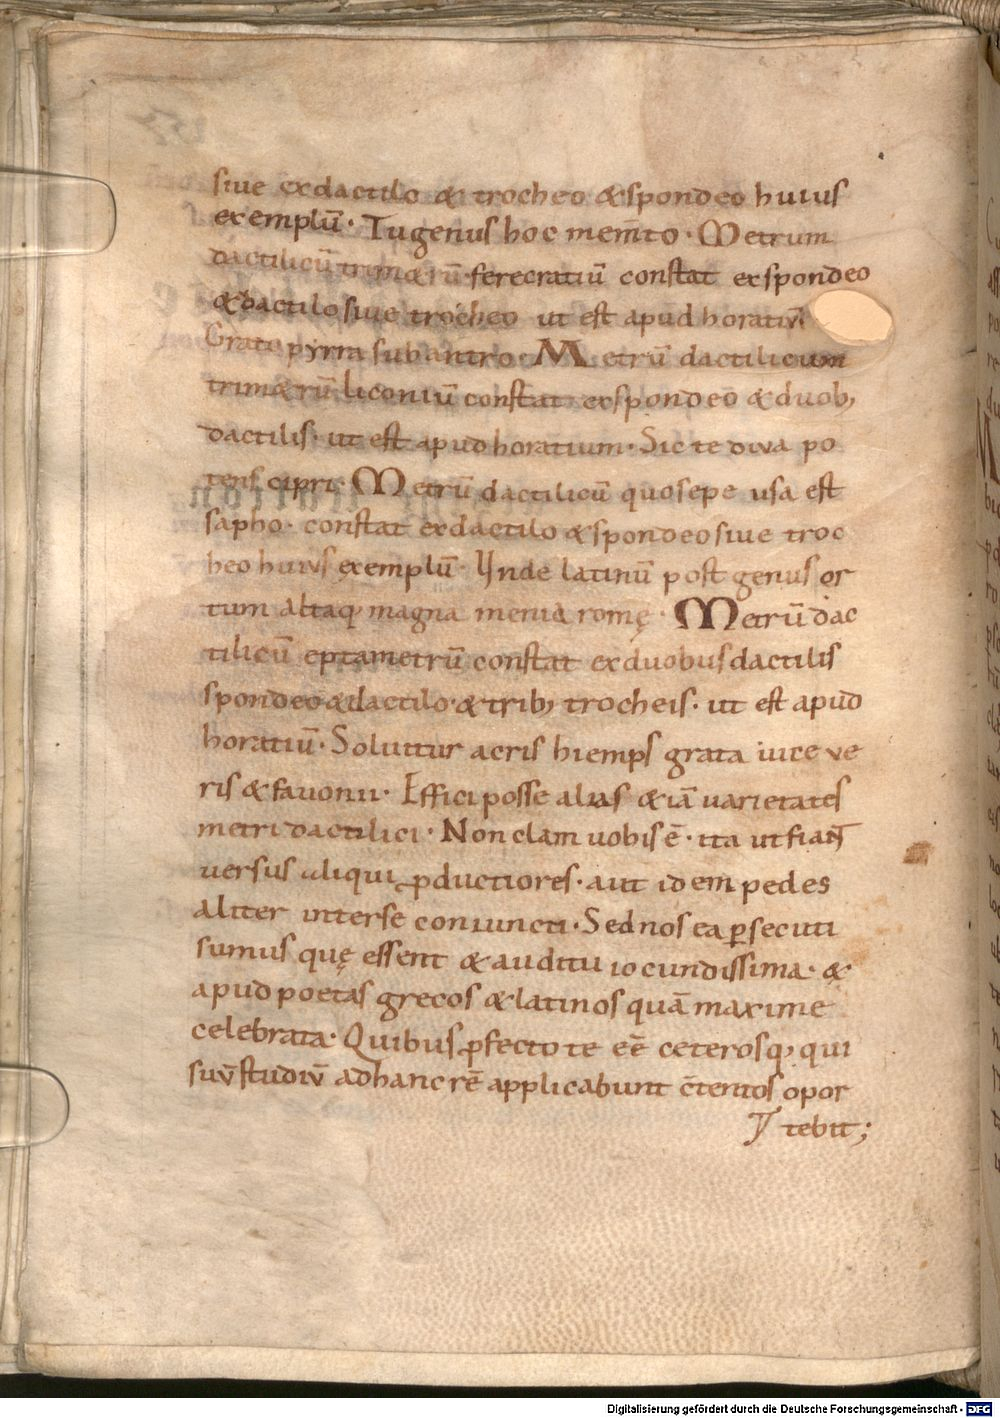 siue exdactilo & trocheo &spondeo huius
exemplū· Tugenus hoc mem̄to· Metrum
dactilicū trim&rū·ferecratiū constat exspondeo
&dactilosiue trocheo ut est apud horatiū·
Grato pyrra subantro· Metrū dactilicum
trim&rū liconiū constat exspondeo &duob;
dactilis· ut est apud horatium· Sic te diva po
tens cipri· Metrū dactilicū quosepe usa est
sapho· constat exdactilo &spondeosiue troc
heo huius exemplū· Ynde latinū post genus or
tum altaq; magna menia romę· Metrū dac
tilicū eptametrū constat exduobusdactilis
spondeo&dactilo·&trib; trocheis· ut est apud
horatiū· Soluitur acris hiemps grata uice ve
ris &fauonii· Effici posse alias &iā uarietates
metri dactilici· Nonclam uobis ē· ita ut fiant̄
uersus aliqui ꝓductiores· aut idem pedes
aliter interse coniuncti· Sed nos ea ꝑsecuti
sumus quę essent &auditu iocundissima· &
apud poetas grecos &latinos quā maxime
celebrata· Quibus ꝓfecto te eē ceterosq; qui
suū studiū adhanc rē applicabunt c̄tentos opor
tebit;
Digitalisierung gefördert durch die Deutsche Forschungsgemeinschaft - DFG